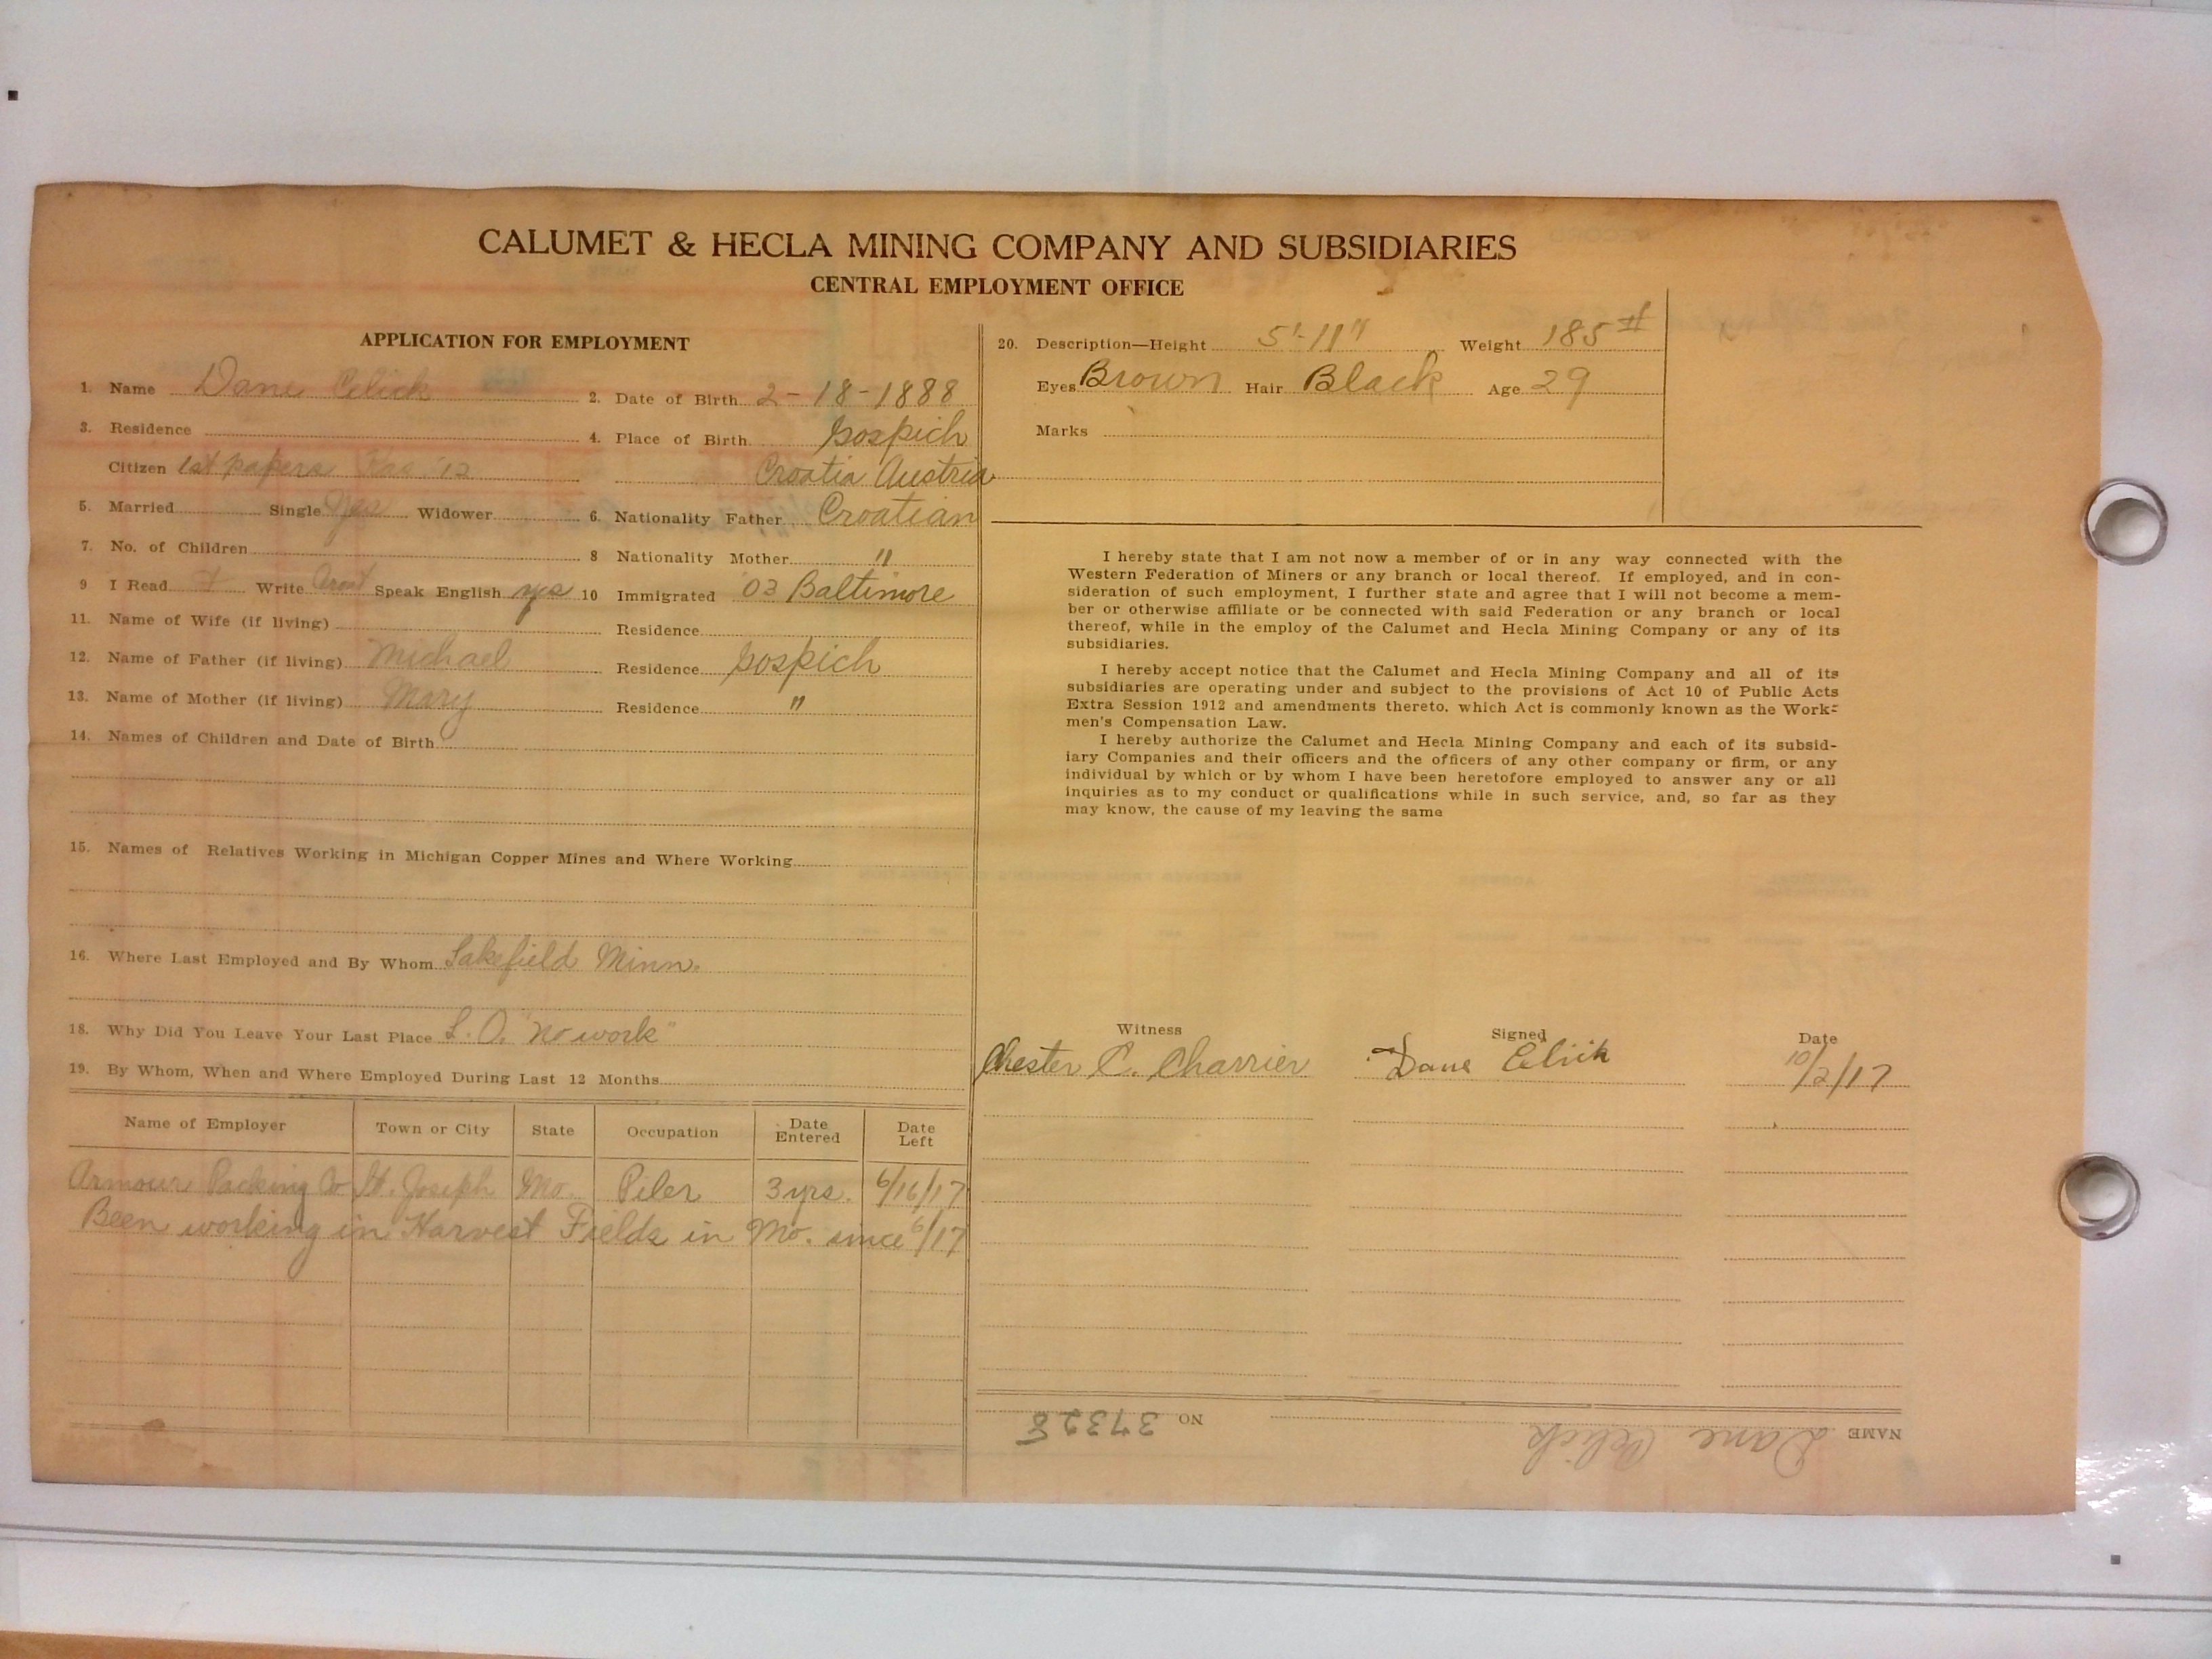 CALUMET & HECLA MINING COMPANY AND SUBSIDIARIES
CENTRAL EMPLOYMENT OFFICE
APPLICATION FOR EMPLOYMENT
1. Name Dane Celick 2. Date of Birth 2-18-1888
3. Residence 4. Place of Birth Gospich
Citizen 1st papers Kas '12 Croatia Austria
5. Married Single Yes Widower 6. Nationality Father Croatian
7. No. of Children 8 Nationality Mother "
9 I Read Write Croat Speak English yes 10 Immigrated 03 Baltimore
11. Name of Wife (if living) Residence
12. Name of Father (if living) Michael Residence Gospich
13. Name of Mother (if living) Mary Residence "
14. Names of Children and Date of Birth
15. Names of Relatives Working in Michigan Copper Mines and Where Working
16. Where Last Employed and By Whom Lakefield Minn.
18. Why Did You Leave Your Last Place L.O. "no work"
19. By Whom, When and Where Employed During Last 12 Months
Name of Employer Town or City State Occupation Date Entered Date Left
Armour Packing Co St. Joseph Mo. Piler 3 yrs. 6/16/17
Been working in Harvest Fields in Mo. since 6/17
20. Description—Height 5'-11" Weight 185#
Eyes Brown Hair Black Age 29
Marks
I hereby state that I am not now a member of or in any way connected with the
Western Federation of Miners or any branch or local thereof. If employed, and in con-
sideration of such employment, I further state and agree that I will not become a mem-
ber or otherwise affiliate or be connected with said Federation or any branch or local
thereof, while in the employ of the Calumet and Hecla Mining Company or any of its
subsidiaries.
I hereby accept notice that the Calumet and Hecla Mining Company and all of its
subsidiaries are operating under and subject to the provisions of Act 10 of Public Acts
Extra Session 1912 and amendments thereto, which Act is commonly known as the Work-
men's Compensation Law.
I hereby authorize the Calumet and Hecla Mining Company and each of its subsid-
iary Companies and their officers and the officers of any other company or firm, or any
individual by which or by whom I have been heretofore employed to answer any or all
inquiries as to my conduct or qualifications while in such service, and, so far as they
may know, the cause of my leaving the same
Witness Signed Date
Chester C. Charrier Dane Celick 10/2/17
NAME Dane Celick NO 37328